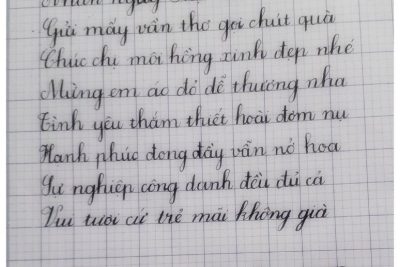 Gửi mấy vần thơ gọi chút quà
Chúc chị môi hồng xinh đẹp nhé
Mừng em áo đỏ dễ thương nha
Tình yêu thắm thiết hoài đơm nụ
Hạnh phúc đong đầy vẫn nở hoa
Sự nghiệp công danh đều đủ cả
Vui tươi cứ trẻ mãi không già